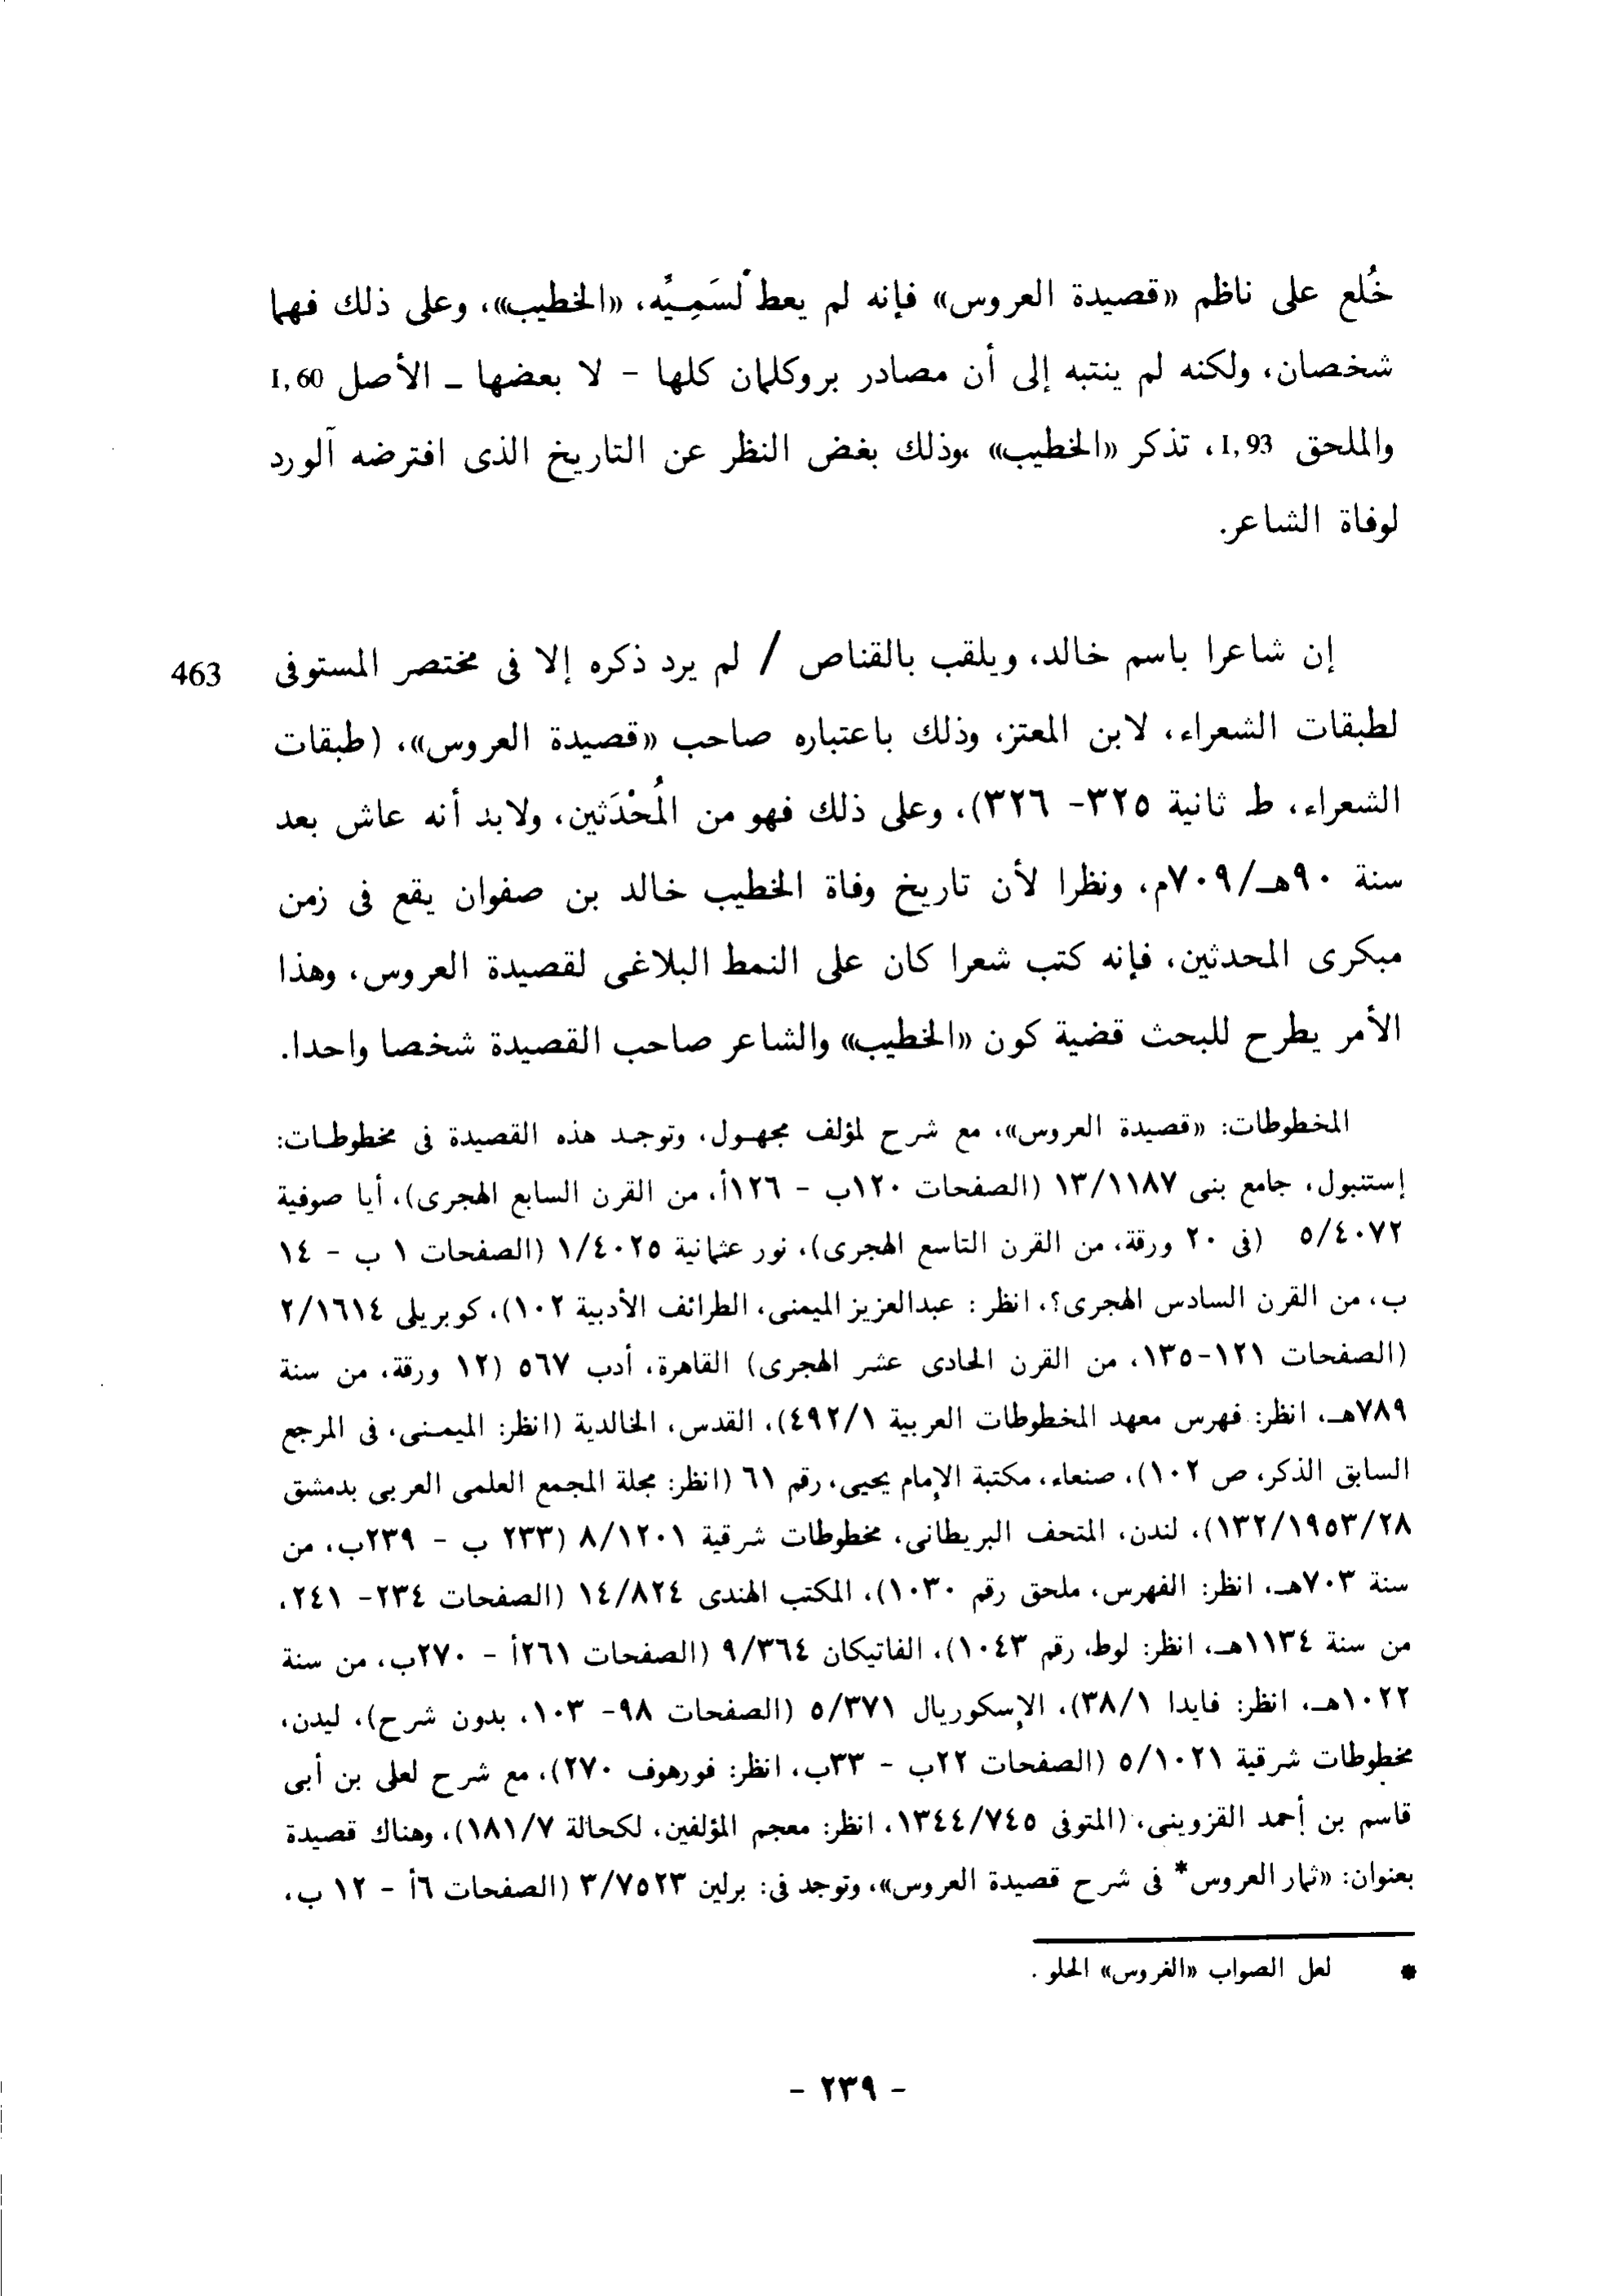 خُلع على ناظم «قصيدة العروس» فإنه لم يعط لسَمِيِّه، «الخطيب»، وعلى ذلك فهما
شخصان، ولكنه لم ينتبه إلى أن مصادر بروكلمان كلها - لا بعضها - الأصل I, 60
والملحق I, 93، تذكر «الخطيب» ،وذلك بغض النظر عن التاريخ الذى افترضه آلورد
لوفاة الشاعر.
إن شاعرا باسم خالد، ويلقب بالقناص / لم يرد ذكره إلا فى مختصر المستوفى 463
لطبقات الشعراء، لابن المعتز، وذلك باعتباره صاحب «قصيدة العروس»، (طبقات
الشعراء، ط ثانية ٣٢٥- ٣٢٦)، وعلى ذلك فهو من المُحْدَثين، ولابد أنه عاش بعد
سنة ٩٠هـ/٧٠٩م، ونظرا لأن تاريخ وفاة الخطيب خالد بن صفوان يقع فى زمن
مبكرى المحدثين، فإنه كتب شعرا كان على النمط البلاغى لقصيدة العروس، وهذا
الأمر يطرح للبحث قضية كون «الخطيب» والشاعر صاحب القصيدة شخصا واحدا.
المخطوطات: «قصيدة العروس»، مع شرح لمؤلف مجهول، وتوجد هذه القصيدة فى مخطوطات:
إستنبول، جامع بنى ١٣/١١٨٧ (الصفحات ١٢٠ب - ١٢٦أ، من القرن السابع الهجرى)، أيا صوفية
٥/٤٠٧٢ (فى ٢٠ ورقة، من القرن التاسع الهجرى)، نور عثمانية ١/٤٠٢٥ (الصفحات ١ ب - ١٤
ب، من القرن السادس الهجرى؟، انظر : عبدالعزيز الميمنى، الطرائف الأدبية ١٠٢)، كوبريلى ٢/١٦١٤
(الصفحات ١٢١-١٣٥، من القرن الحادى عشر الهجرى) القاهرة، أدب ٥٦٧ (١٢ ورقة، من سنة
٧٨٩هـ، انظر: فهرس معهد المخطوطات العربية ٤٩٢/١)، القدس، الخالدية (انظر: الميمنى، فى المرجع
السابق الذكر، ص ١٠٢)، صنعاء، مكتبة الإمام يحيى، رقم ٦١ (انظر: مجلة المجمع العلمى العربى بدمشق
١٣٢/١٩٥٣/٢٨)، لندن، المتحف البريطانى، مخطوطات شرقية ٨/١٢٠١ (٢٣٣ ب - ٢٣٩ب، من
سنة ٧٠٣هـ، انظر: الفهرس، ملحق رقم ١٠٣٠)، المكتب الهندى ١٤/٨٢٤ (الصفحات ٢٣٤- ٢٤١،
من سنة ١١٣٤هـ، انظر: لوط، رقم ١٠٤٣)، الفاتيكان ٩/٣٦٤ (الصفحات ٢٦١أ - ٢٧٠ب، من سنة
١٠٢٢هـ، انظر: فايدا ٣٨/١)، الإسكوريال ٥/٣٧١ (الصفحات ٩٨- ١٠٣، بدون شرح)، ليدن،
مخطوطات شرقية ٥/١٠٢١ (الصفحات ٢٢ب - ٣٣ب، انظر: فورهوف ٢٧٠)، مع شرح لعلى بن أبى
قاسم بن أحمد القزوينى، (المتوفى ١٣٤٤/٧٤٥، انظر: معجم المؤلفين، لكحالة ١٨١/٧)، وهناك قصيدة
بعنوان: «ثمار العروس* فى شرح قصيدة العروس»، وتوجد فى: برلين ٣/٧٥٢٣ (الصفحات ٦أ - ١٢ ب،
* لعل الصواب «الغروس» الحلو .
- ٢٣٩ -